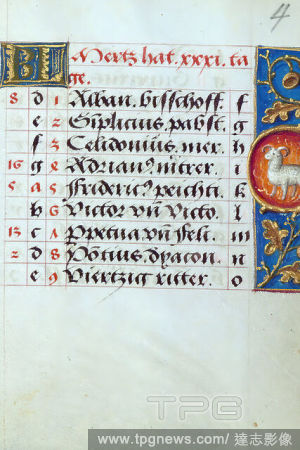 4
KL Mertz hat .xxxi. ta
ge.
8 d 1 Alban. bisschoff. f
e 2 Simplicius. pabst. g
f 3 Celidonius. mer. h
16 g 4 Adrianꝰ. mitrer. i
5 a 5 Fridericꝰ. peichti. k
b 6 Victor vn̄ Victo. l
13 c 7 Ppetua vn̄ feli. m
2 d 8 Pontius. dyacon. n
e 9 Viertzig ritter. o
TPG
www.tpgnews.com/達志影像